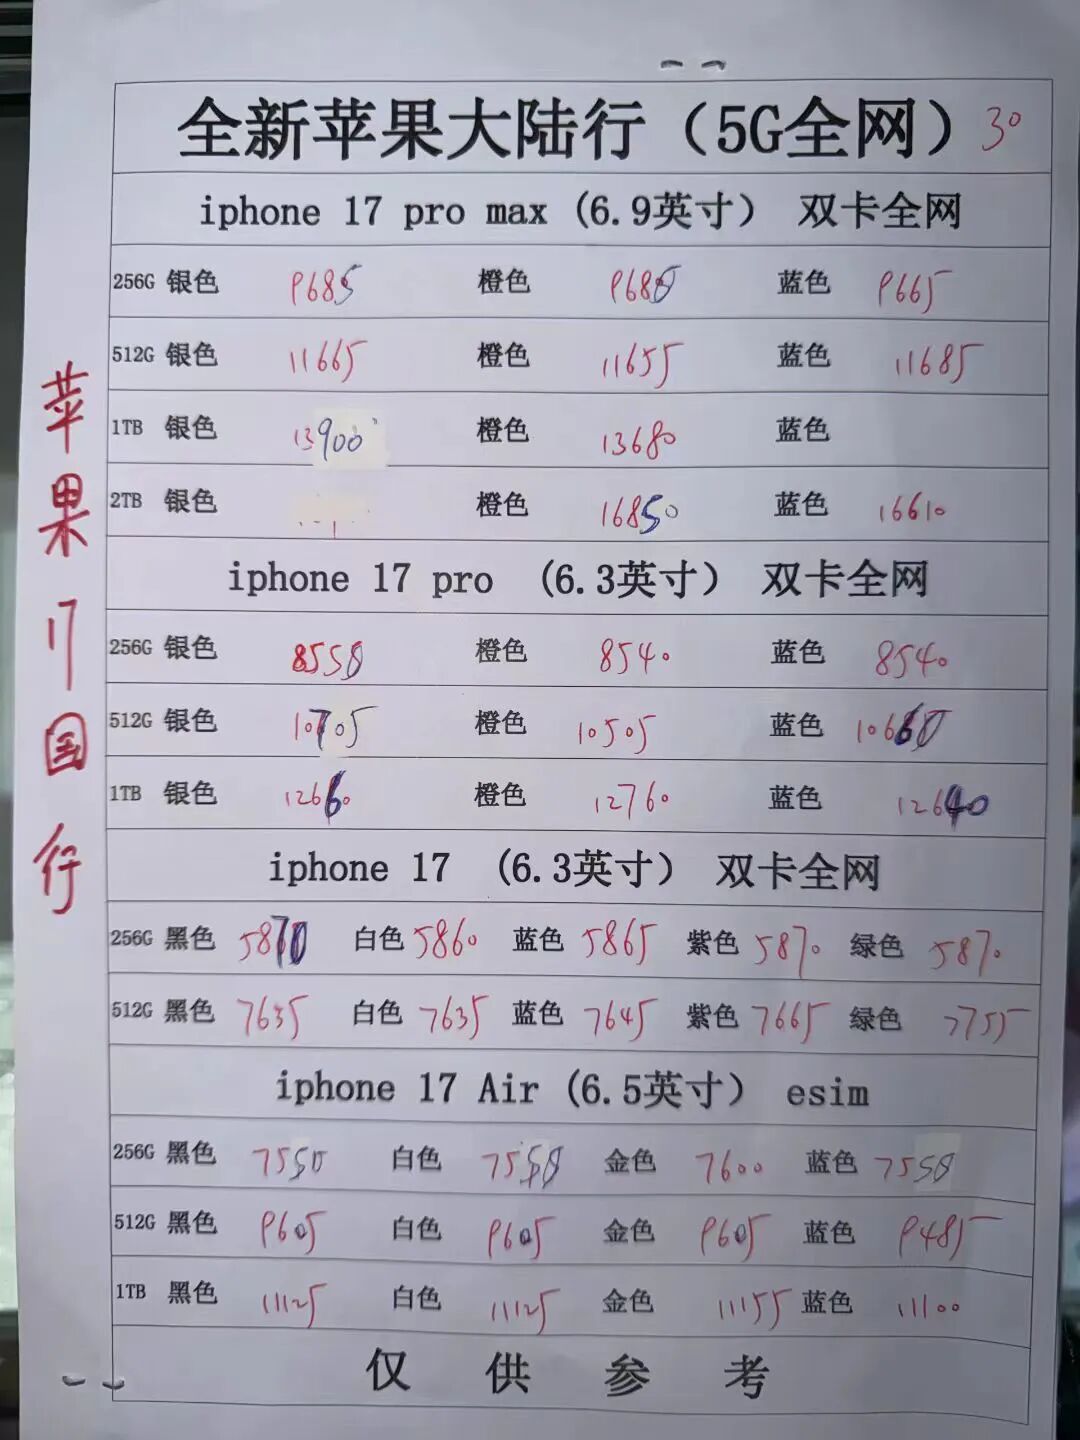 全新苹果大陆行（5G全网）30
iphone 17 pro max (6.9英寸） 双卡全网
256G 银色 9685 橙色 9680 蓝色 9665
512G 银色 11665 橙色 11655 蓝色 11685
1TB 银色 13900 橙色 13680 蓝色
2TB 银色 橙色 16850 蓝色 16610
iphone 17 pro (6.3英寸） 双卡全网
256G 银色 8550 橙色 8540 蓝色 8540
512G 银色 10705 橙色 10505 蓝色 10660
1TB 银色 12660 橙色 12760 蓝色 12640
iphone 17 (6.3英寸） 双卡全网
256G 黑色 5870 白色 5860 蓝色 5865 紫色 5870 绿色 5870
512G 黑色 7635 白色 7635 蓝色 7645 紫色 7665 绿色 7755
iphone 17 Air (6.5英寸） esim
256G 黑色 7550 白色 7550 金色 7600 蓝色 7550
512G 黑色 9605 白色 9605 金色 9605 蓝色 9485
1TB 黑色 11125 白色 11125 金色 11155 蓝色 11100
仅供参考
苹果17国行